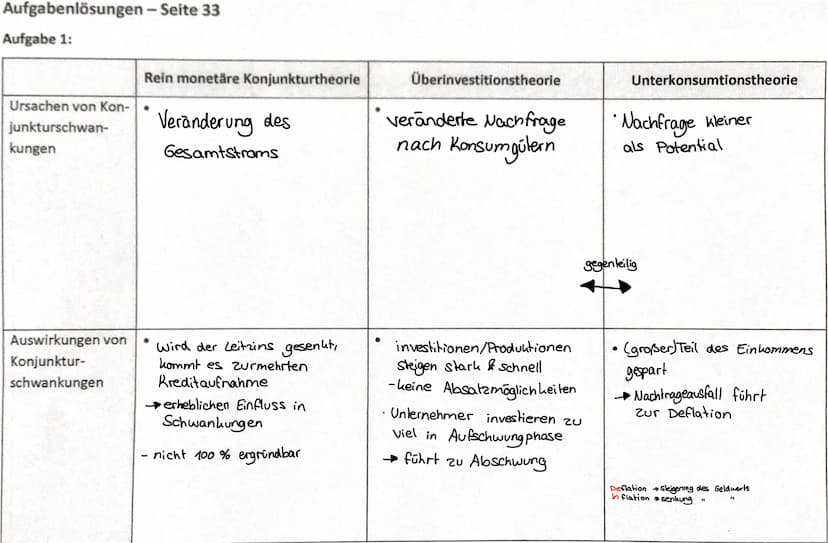 Aufgabenlösungen – Seite 33
Aufgabe 1:
Rein monetäre Konjunkturtheorie
Überinvestitionstheorie
Unterkonsumtionstheorie
Ursachen von Kon-
junkturschwan-
kungen
• Veränderung des
Gesamtstroms
• veränderte Nachfrage
nach Konsumgütern
• Nachfrage kleiner
als Potential
gegenteilig
Auswirkungen von
Konjunktur-
schwankungen
• Wird der Leitzins gesenkt,
kommt es zurmehrten
Kreditaufnahme
→ erheblichen Einfluss in
Schwankungen
- nicht 100 % ergründbar
• investitionen/Produktionen
steigen stark & schnell
- keine Absatzmöglichkeiten
· Unternehmer investieren zu
viel in Aufschwungphase
→ führt zu Abschwung
• (großer) Teil des Einkommens
gespart
→ Nachfrageausfall führt
zur Deflation
Deflation → steigerung des Geldwerts
Inflation → senkung " "